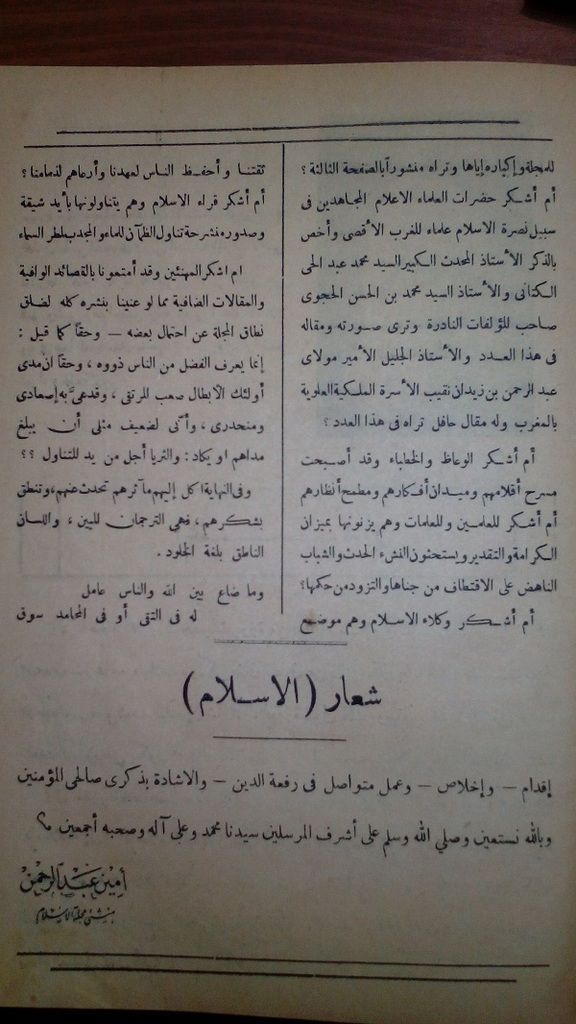 للمجلة وإكباره إياها وتراه منشوراً بالصفحة الثالثة ؟
أم أشكر حضرات العلماء الاعلام المجاهدين فى
سبيل نصرة الاسلام علماء للغرب الأقصى وأخص
بالذكر الأستاذ المحدث الكبير السيد محمد عبد الحى
الكتانى والأستاذ السيد محمد بن الحسن الحجوى
صاحب للؤلفات النادرة وترى صورته ومقاله
فى هذا العدد والأستاذ الجليل الأمير مولاى
عبد الرحمن بن زيدان نقيب الأسرة الملكية العلوية
بالمغرب وله مقال حافل تراه فى هذا العدد ؟
أم أشكر الوعاظ والخطباء وقد أصبحت
مسرح أقلامهم وميدان أفكارهم ومطمح أنظارهم
أم أشكر للعلمين وللعلمات وهم يزنونها بميزان
الكرامة والتقدير ويستحثون النشء الحدث والشباب
الناهض على الاقتطاف من جناها والتزود من حكمها؟
أم أشكر وكلاء الاسلام وهم موضع
ثقتنا وأحفظ الناس لعهدنا وأرعاهم لذمامنا ؟
أم أشكر قراء الاسلام وهم يتناولونها بأيد شيقة
وصدور منشرحة تناول الظمآن للماء والمجدب لمطر السماء
ام اشكر المهنئين وقد أمتعونا بالقصائد الوافية
والمقالات الضافية مما لو عنينا بنشره كله لضاق
نطاق المجلة عن احتمال بعضه — وحقا كما قيل :
إنما يعرف الفضل من الناس ذووه ، وحقا ان مدى
أولئك الأبطال صعب المرتقى ، وقد عىَّ به إصعادى
ومنحدرى ، وأنى لضعيف مثلى أن يبلغ
مداهم او يكاد : والثريا أجل من يد للتناول ؟؟
وفى النهاية اكل إليهم مآثرهم تحدث عنهم ، وتنطق
بشكرهم ، فهى الترجمان للبين ، واللسان
الناطق بلغة الخلود .
وما ضاع بين الله والناس عامل
له فى التقى أو فى المحامد سوق
شعار (الاسلام)
إقدام — وإخلاص — وعمل متواصل فى رفعة الدين — والاشادة بذكرى صالحى المؤمنين
وبالله نستعين وصلي الله وسلم على أشرف المرسلين سيدنا محمد وعلى آله وصحبه أجمعين
أمين عبد الرحمن
منشئ مجلة الاسلام